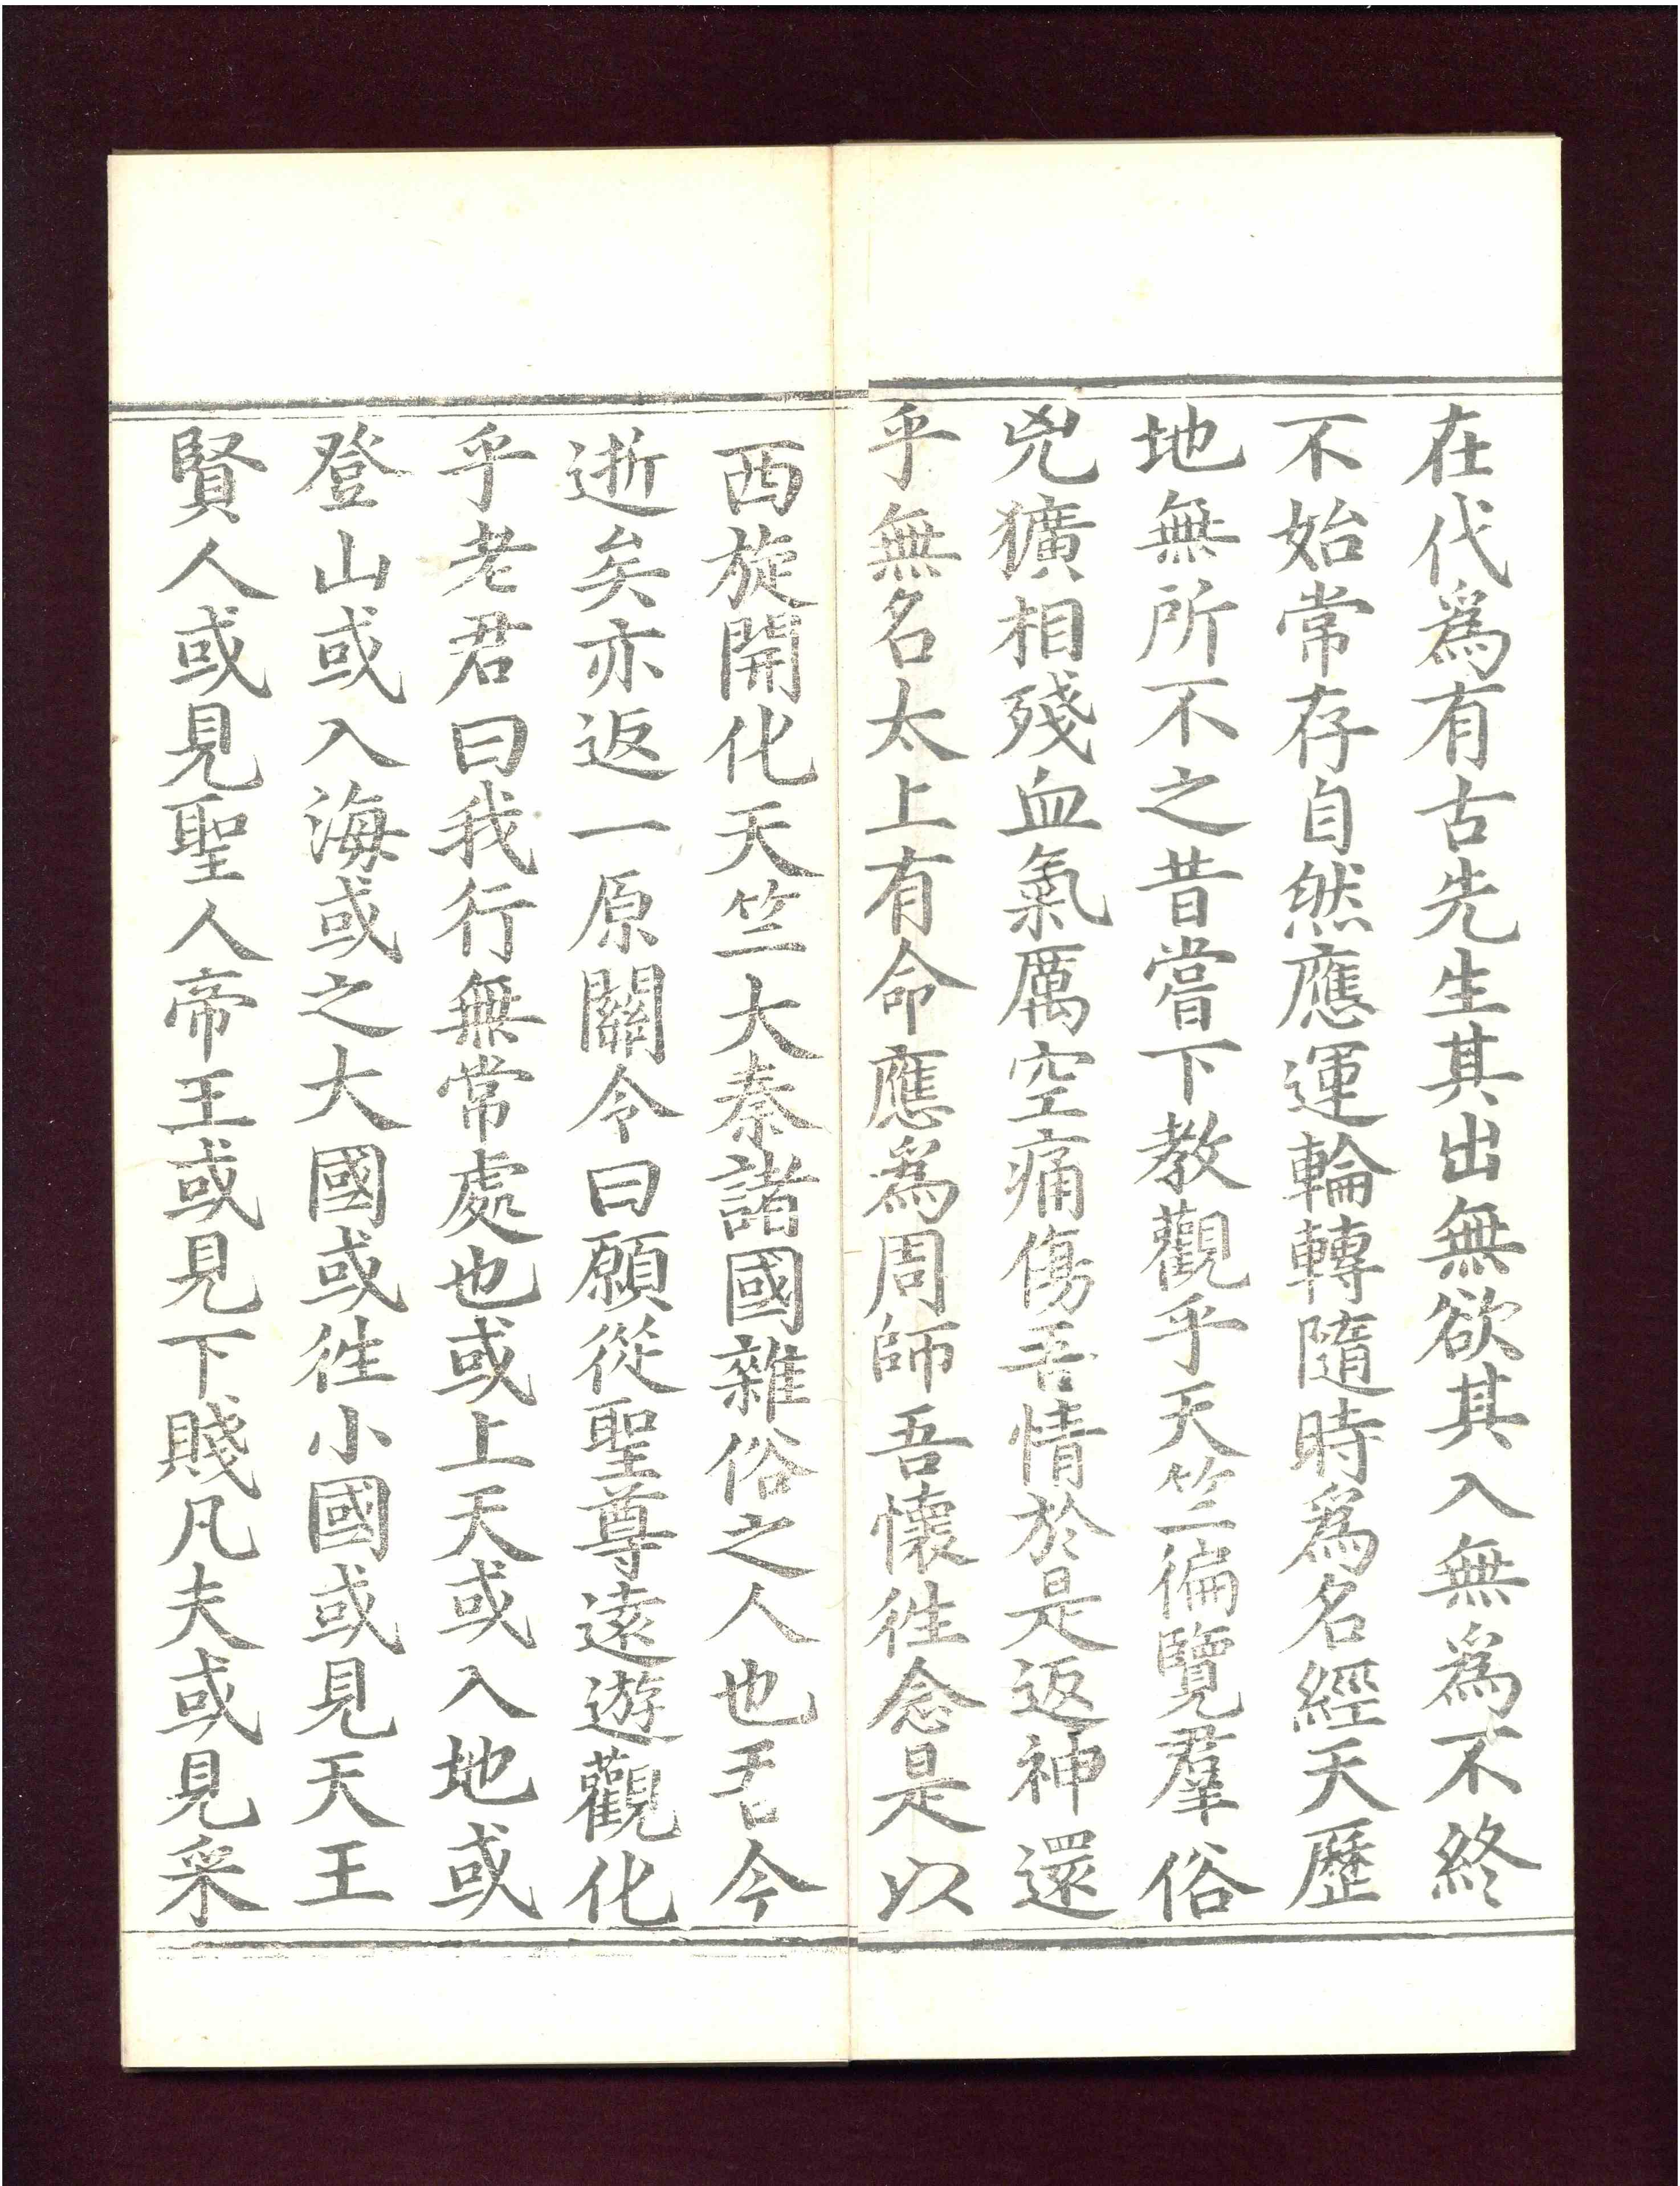 在代為有古先生其出無欲其入無為不終
不始常存自然應運輪轉隨時為名經天歷
地無所不之昔嘗下教觀乎天竺徧覽羣俗
兇獷相殘血氣厲空痛傷吾情於是返神還
乎無名太上有命應為周師吾懷徃念是以
西旋開化天竺大秦諸國雜俗之人也吾今
逝矣亦返一原關令曰願從聖尊遠遊觀化
乎老君曰我行無常處也或上天或入地或
登山或入海或之大國或徃小國或見天王
賢人或見聖人帝王或見下賤凡夫或見采